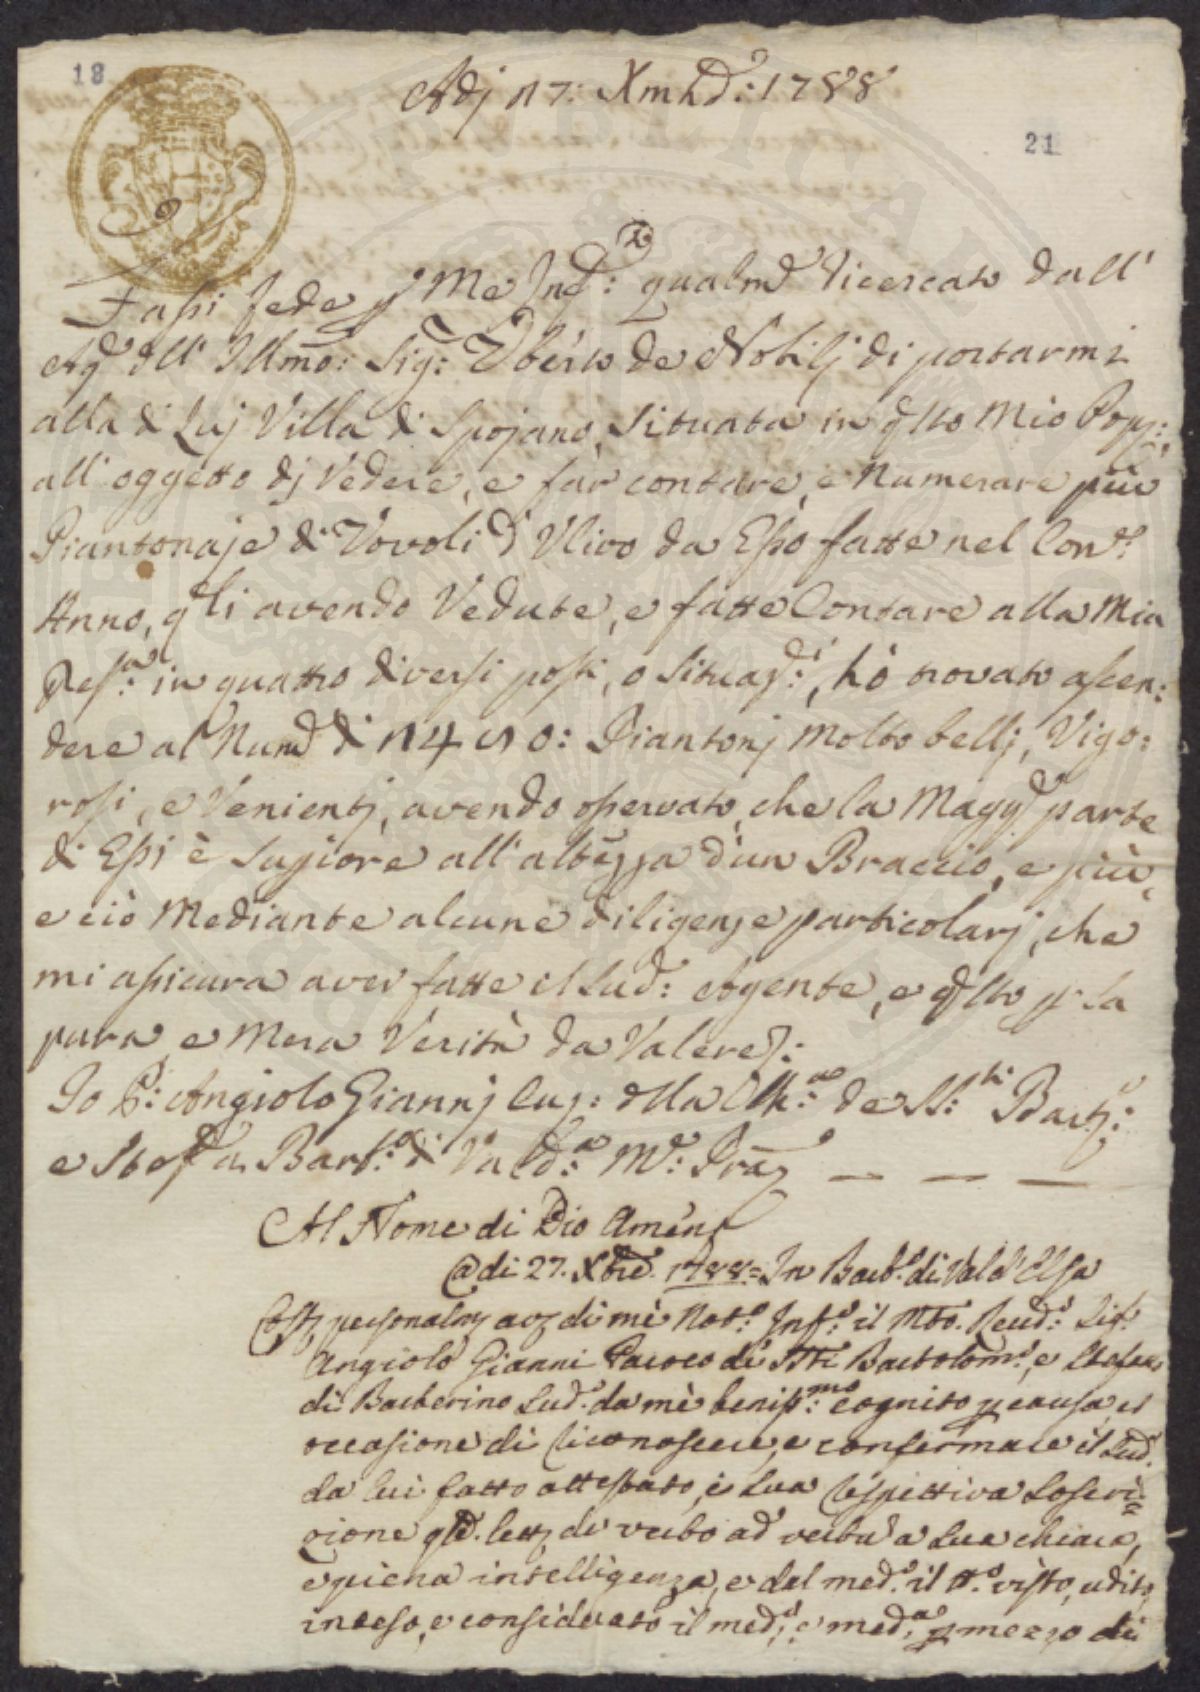 18
Adj 17: Xmbre: 1788
21
Fassi fede p Me Inf:to qualm.e ricercato dall'
Ag.e dell' Illmo: Sig: Uberto de Nobilj di portarmi
alla di Luj Villa di Spojano, Situata in q.sto Mio Pop:,
all' oggetto dj Vedere, e far contare, e Numerare più
Piantonaje di Vovoli d' Ulivo da Esso fatte nel Corr.e
Anno, q.li avendo Vedute, e fatte Contare alla Mia
Pres.a in quattro diversi posti, o Situaz.i:, hò trovato ascen:
dere al Num.o di 14 Piantonj Molto bellj, Vigo:
rosi, e Venientj, avendo osservato, che la Magg.e parte
di Essi è Supiore all' altezza d'un Braccio, e più,
e ciò Mediante alcune diligenze particolarj, che
mi assicura aver fatte il Sud.o: Agente, e q.sto p la
pura e Mera Verità da Valere:
Io P: Angiolo Giannj Cur: dlla Ch:a de SS:ti Bart:o
e Stef.o a Barb.o di Vald:a M.o: Pra
Al Nome di Dio Amen
@di 27. Xbre. 1788= In Barb.o di Val d'Elsa
Cost. personalm. av. di me Not.o Inf.o: il Mto. Revd.o: Sig.
Angiolo Gianni Paroco de SSti Bartolom.o, e Stefano
di Barberino Sud.o da mè beniss:mo cognito p causa, et
occasione di riconoscere, e confermare il Sud.o
da lui fatto attestato, e Sua respettiva Soscri=
zione q.le lett. de verbo ad verbu a Sua chiara,
e piena intelligenza, e dal med.o il tt.o visto, udito,
inteso, e considerato il med.o, e med.a p mezzo di